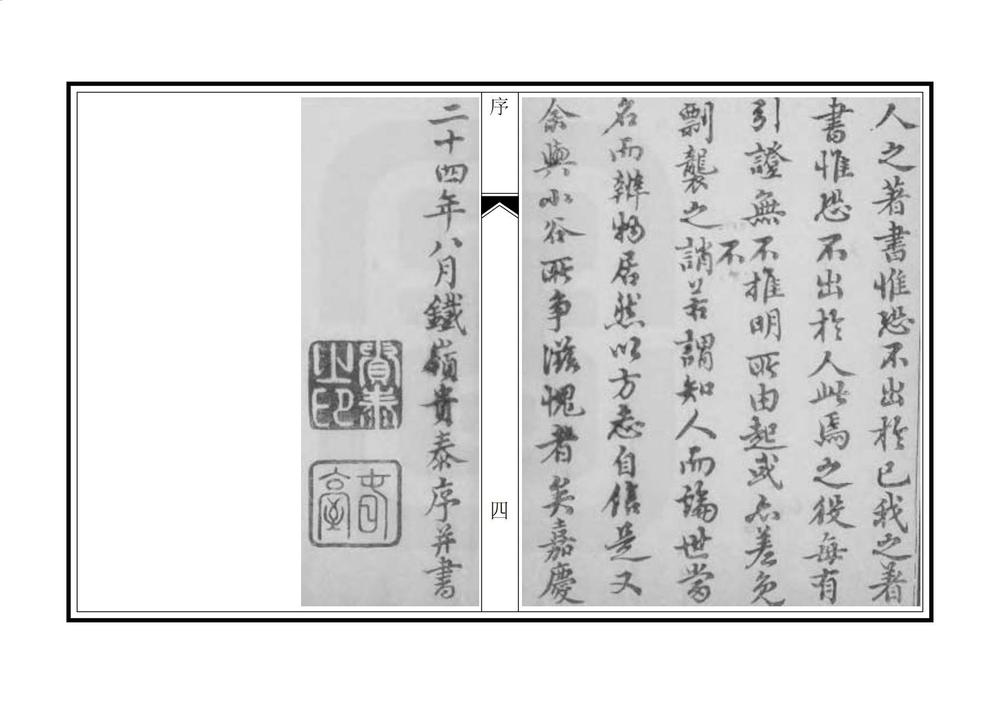 人之著書惟恐不出於己我之著
書惟恐不出於人此焉之役每有
引證無不推明所由起或亦差免
不
剽襲之誚若謂知人而論世當
名而辨物居然以方志自信是又
余與水谷所爭滋愧者矣嘉慶
序
四
二十四年八月鐵嶺貴泰序并書
貴泰
之印